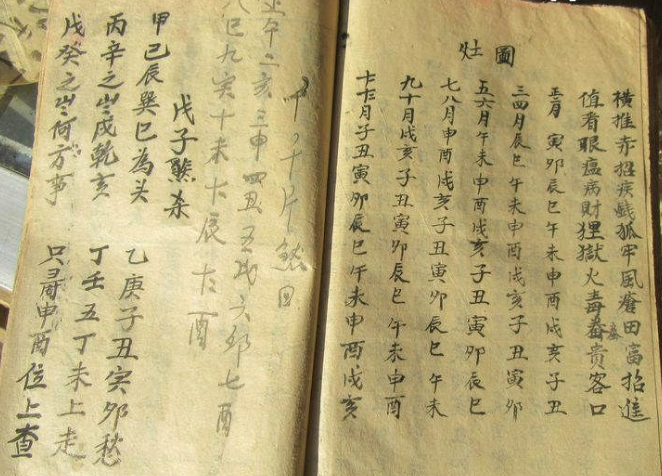 灶圖
橫推赤招疾戲狐牢風瘡田富招進
值看眼瘟病財狸獄火毒蚕貴客口
正二月寅卯辰巳午未申酉戌亥子丑
三四月辰巳午未申酉戌亥子丑寅卯
五六月午未申酉戌亥子丑寅卯辰巳
七八月申酉戌亥子丑寅卯辰巳午未
九十月戌亥子丑寅卯辰巳午未申酉
十一十二月子丑寅卯辰巳午未申酉戌亥
正午二亥三申四丑五戌六卯七酉
八巳九寅十未十一辰十二酉
戊子杀
甲己辰巽巳為头 乙庚子丑寅卯愁
丙辛之岁戌乾亥 丁壬五丁未上走
戊癸之岁何方事 只寻申酉位上查